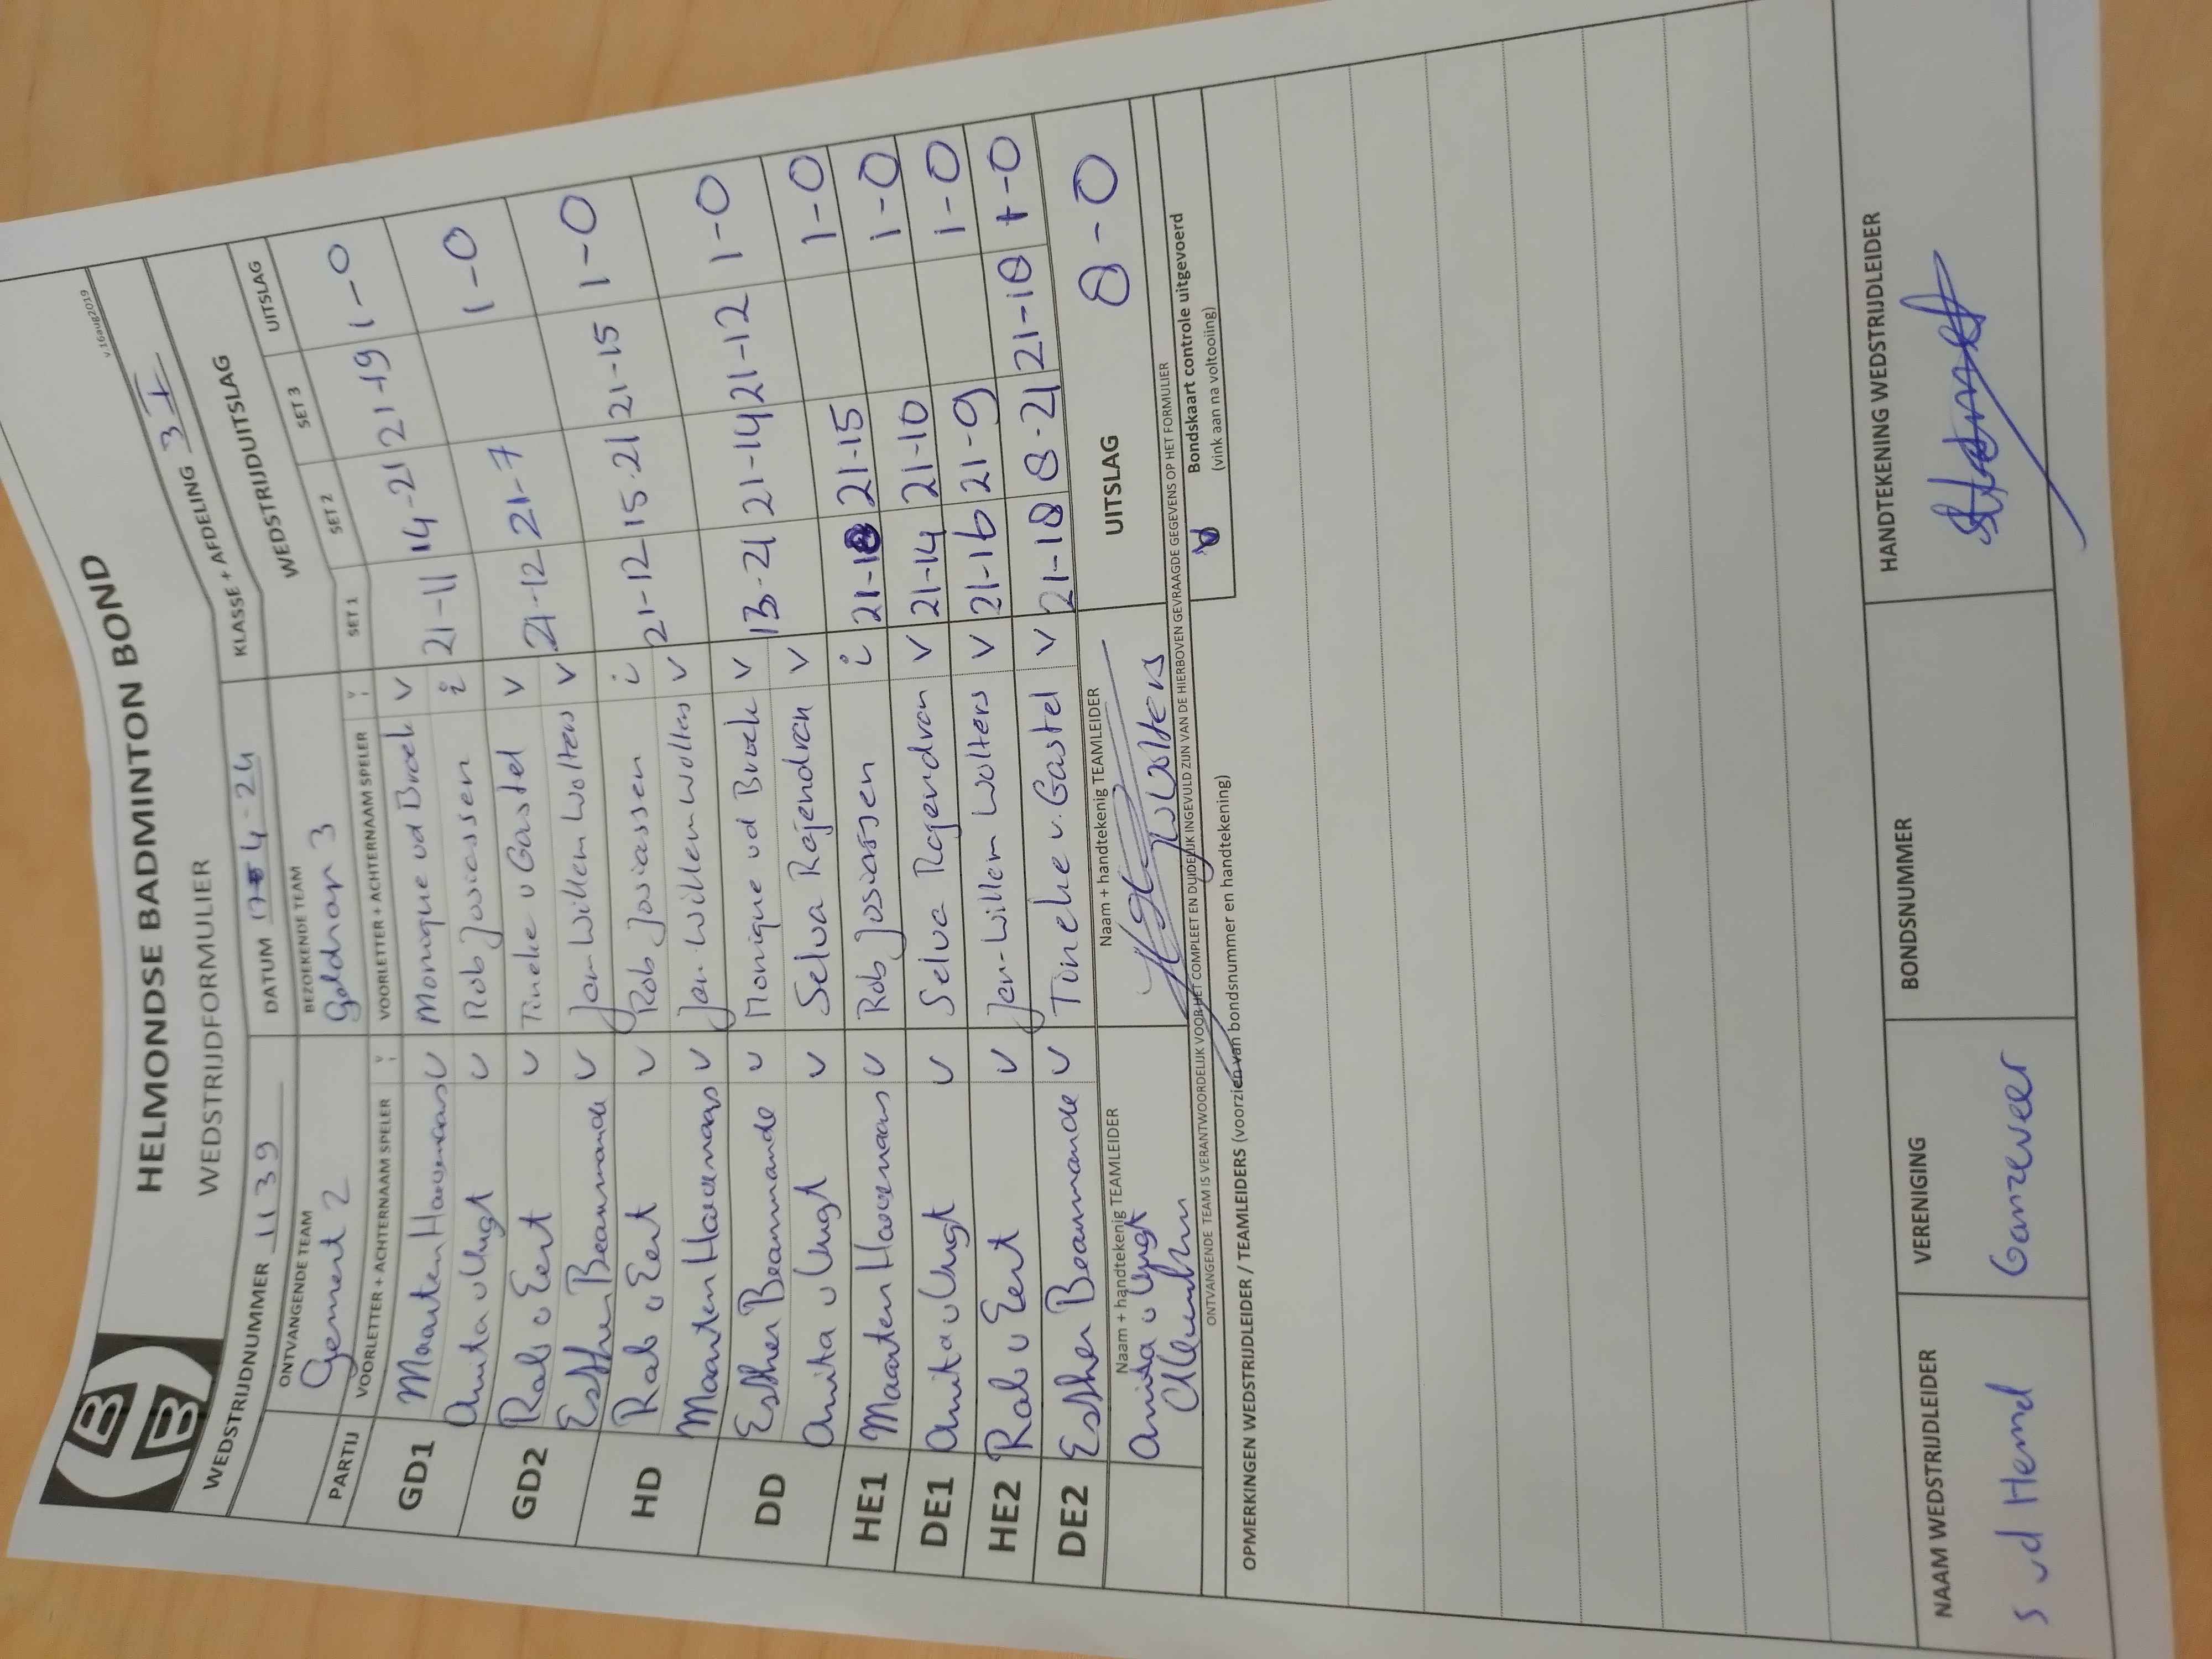 HELMONDSE BADMINTON BOND
WEDSTRIJDFORMULIER
v.16aug2019
WEDSTRIJDNUMMER 1139 DATUM 17-4-24 KLASSE + AFDELING 3 I
ONTVANGENDE TEAM BEZOEKENDE TEAM WEDSTRIJDUITSLAG
Gemert 2 Geldrop 3
PARTIJ VOORLETTER + ACHTERNAAM SPELER V I VOORLETTER + ACHTERNAAM SPELER V I SET 1 SET 2 SET 3 UITSLAG
GD1 Maarten Havermans v Monique vd Broek v 21-11 14-21 21-19 1-0
Anita v Vugt v Rob Josiassen i
GD2 Rob v Eert v Tineke v Gastel v 21-12 21-7 1-0
Esther Beammande v Jan Willem Wolters v
HD Rob v Eert v Rob Josiassen i 21-12 15-21 21-15 1-0
Maarten Havermans v Jan-Willem Wolters v
DD Esther Beammande v Monique vd Broek v 13-21 21-14 21-12 1-0
Anita v Vugt v Selva Rajendran v
HE1 Maarten Havermans v Rob Josiassen i 21-18 21-15 1-0
DE1 Anita v Vugt v Selva Rajendran v 21-14 21-10 1-0
HE2 Rob v Eert v Jan-Willem Wolters v 21-16 21-9 1-0
DE2 Esther Beammande v Tineke v. Gastel v 21-18 8-21 21-18 1-0
Naam + handtekenig TEAMLEIDER Naam + handtekenig TEAMLEIDER UITSLAG 8-0
Anita v Vugt Wolters
ONTVANGENDE TEAM IS VERANTWOORDELIJK VOOR HET COMPLEET EN DUIDELIJK INGEVULD ZIJN VAN DE HIERBOVEN GEVRAAGDE GEGEVENS OP HET FORMULIER
OPMERKINGEN WEDSTRIJDLEIDER / TEAMLEIDERS (voorzien van bondsnummer en handtekening)
V Bondskaart controle uitgevoerd
(vink aan na voltooiing)
NAAM WEDSTRIJDLEIDER VERENIGING BONDSNUMMER HANDTEKENING WEDSTRIJDLEIDER
S vd Hemd Ganzeveer